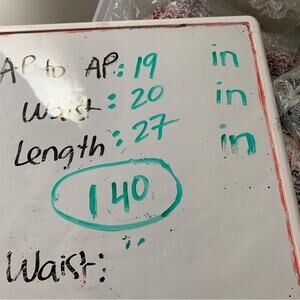 AP to AP: 19 in
Waist: 20 in
Length: 27 in
140
Waist: